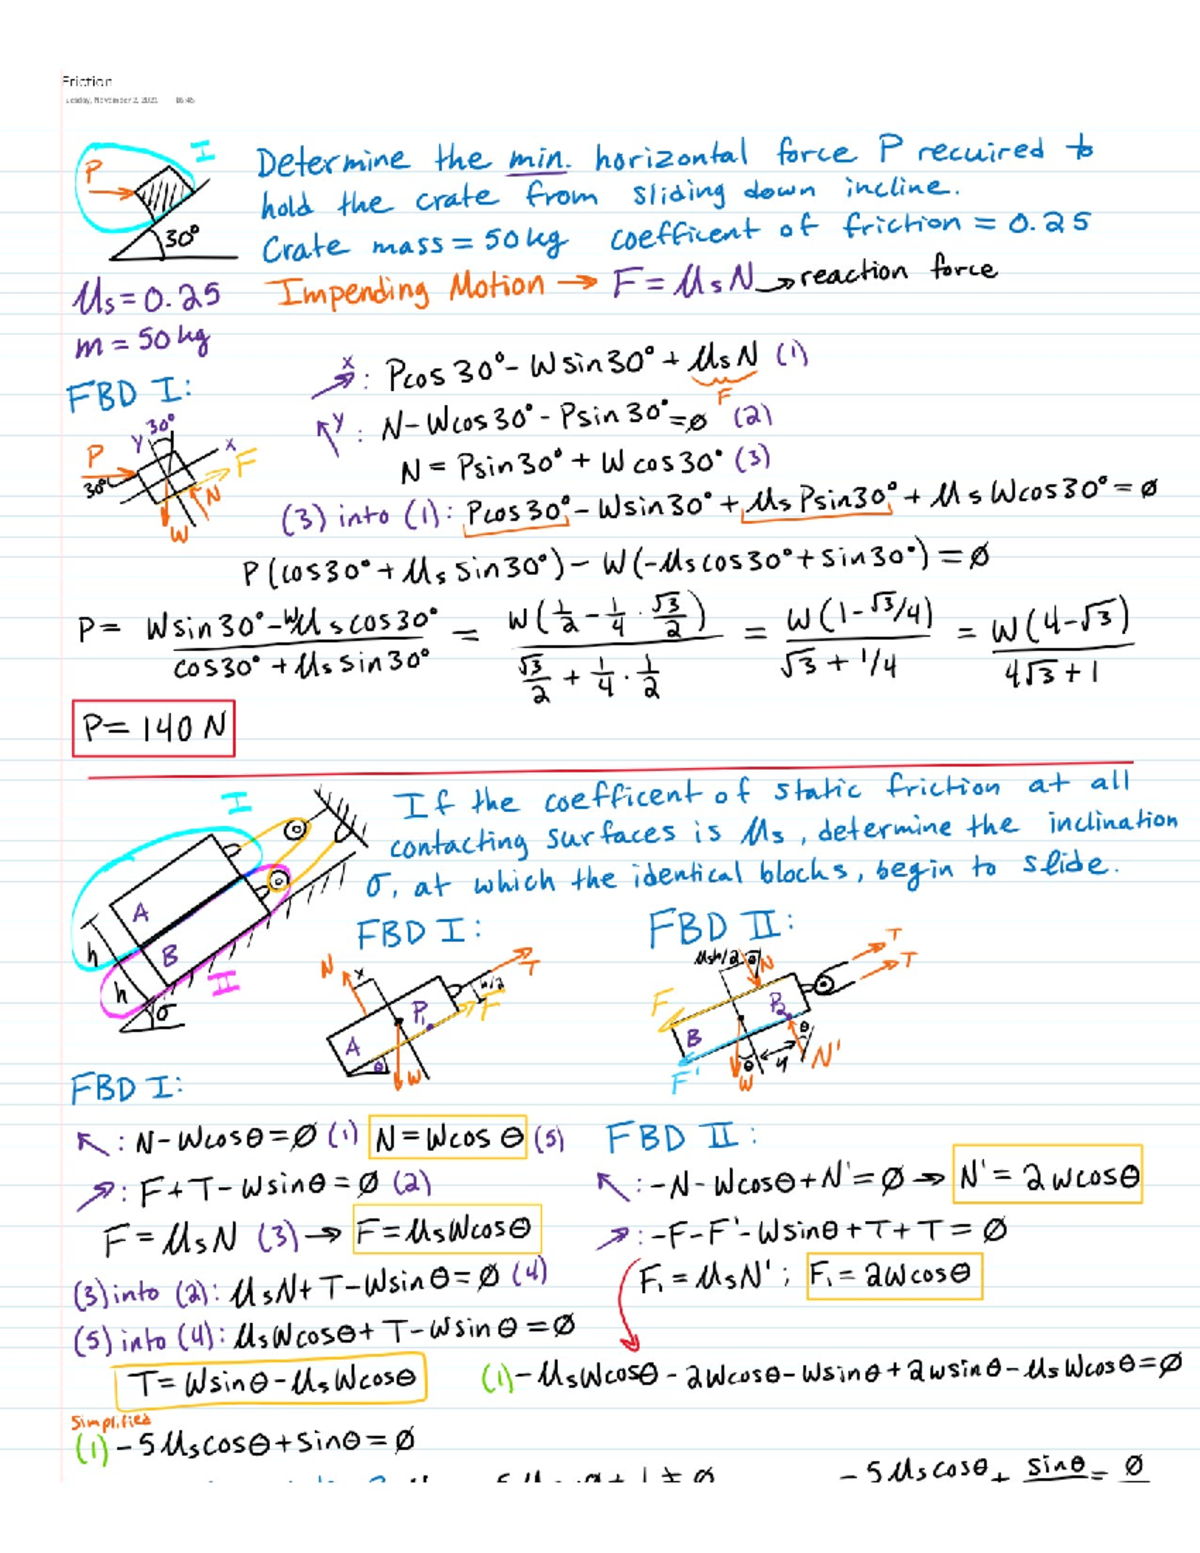 Friction
Tuesday, November 2, 2021 16:45
P I
30°
Determine the min. horizontal force P recuired to
hold the crate from sliding down incline.
Crate mass = 50kg coefficent of friction = 0.25
Ms = 0.25 Impending Motion → F = MsN → reaction force
m = 50kg
x: Pcos30° - Wsin30° + MsN (1)
F
FBD I:
y: N - Wcos30° - Psin30° = ø (2)
N = Psin30° + Wcos30° (3)
P 30° Y 30° x F N W
(3) into (1): Pcos30° - Wsin30° + MsPsin30° + MsWcos30° = ø
P(cos30° + Mssin30°) - W(-Mscos30° + sin30°) = ø
P = Wsin30° - WMscos30° / cos30° + Mssin30° = W(1/2 - 1/4 · √3/2) / √3/2 + 1/4 · 1/2 = W(1 - √3/4) / √3 + 1/4 = W(4 - √3) / 4√3 + 1
P = 140 N
If the coefficent of static friction at all
contacting surfaces is Ms, determine the inclination
σ, at which the identical blocks, begin to slide.
I A B h h II σ
FBD I: FBD II:
N x T P₁ h/2 F A θ W
Msh/2 σ N T T F P₂ B θ F' θ W y N'
FBD I:
↖: N - Wcosθ = ø (1) N = Wcosθ (5)
↗: F + T - Wsinθ = ø (2)
F = MsN (3) → F = MsWcosθ
(3) into (2): MsN + T - Wsinθ = ø (4)
(5) into (4): MsWcosθ + T - Wsinθ = ø
T = Wsinθ - MsWcosθ
FBD II:
↖: -N - Wcosθ + N' = ø → N' = 2Wcosθ
↗: -F - F' - Wsinθ + T + T = ø
F₁ = MsN'; F₁ = 2Wcosθ
(1) - MsWcosθ - 2Wcosθ - Wsinθ + 2Wsinθ - MsWcosθ = ø
Simplified
(1) - 5Mscosθ + sinθ = ø
- 5Mscosθ + sinθ = ø